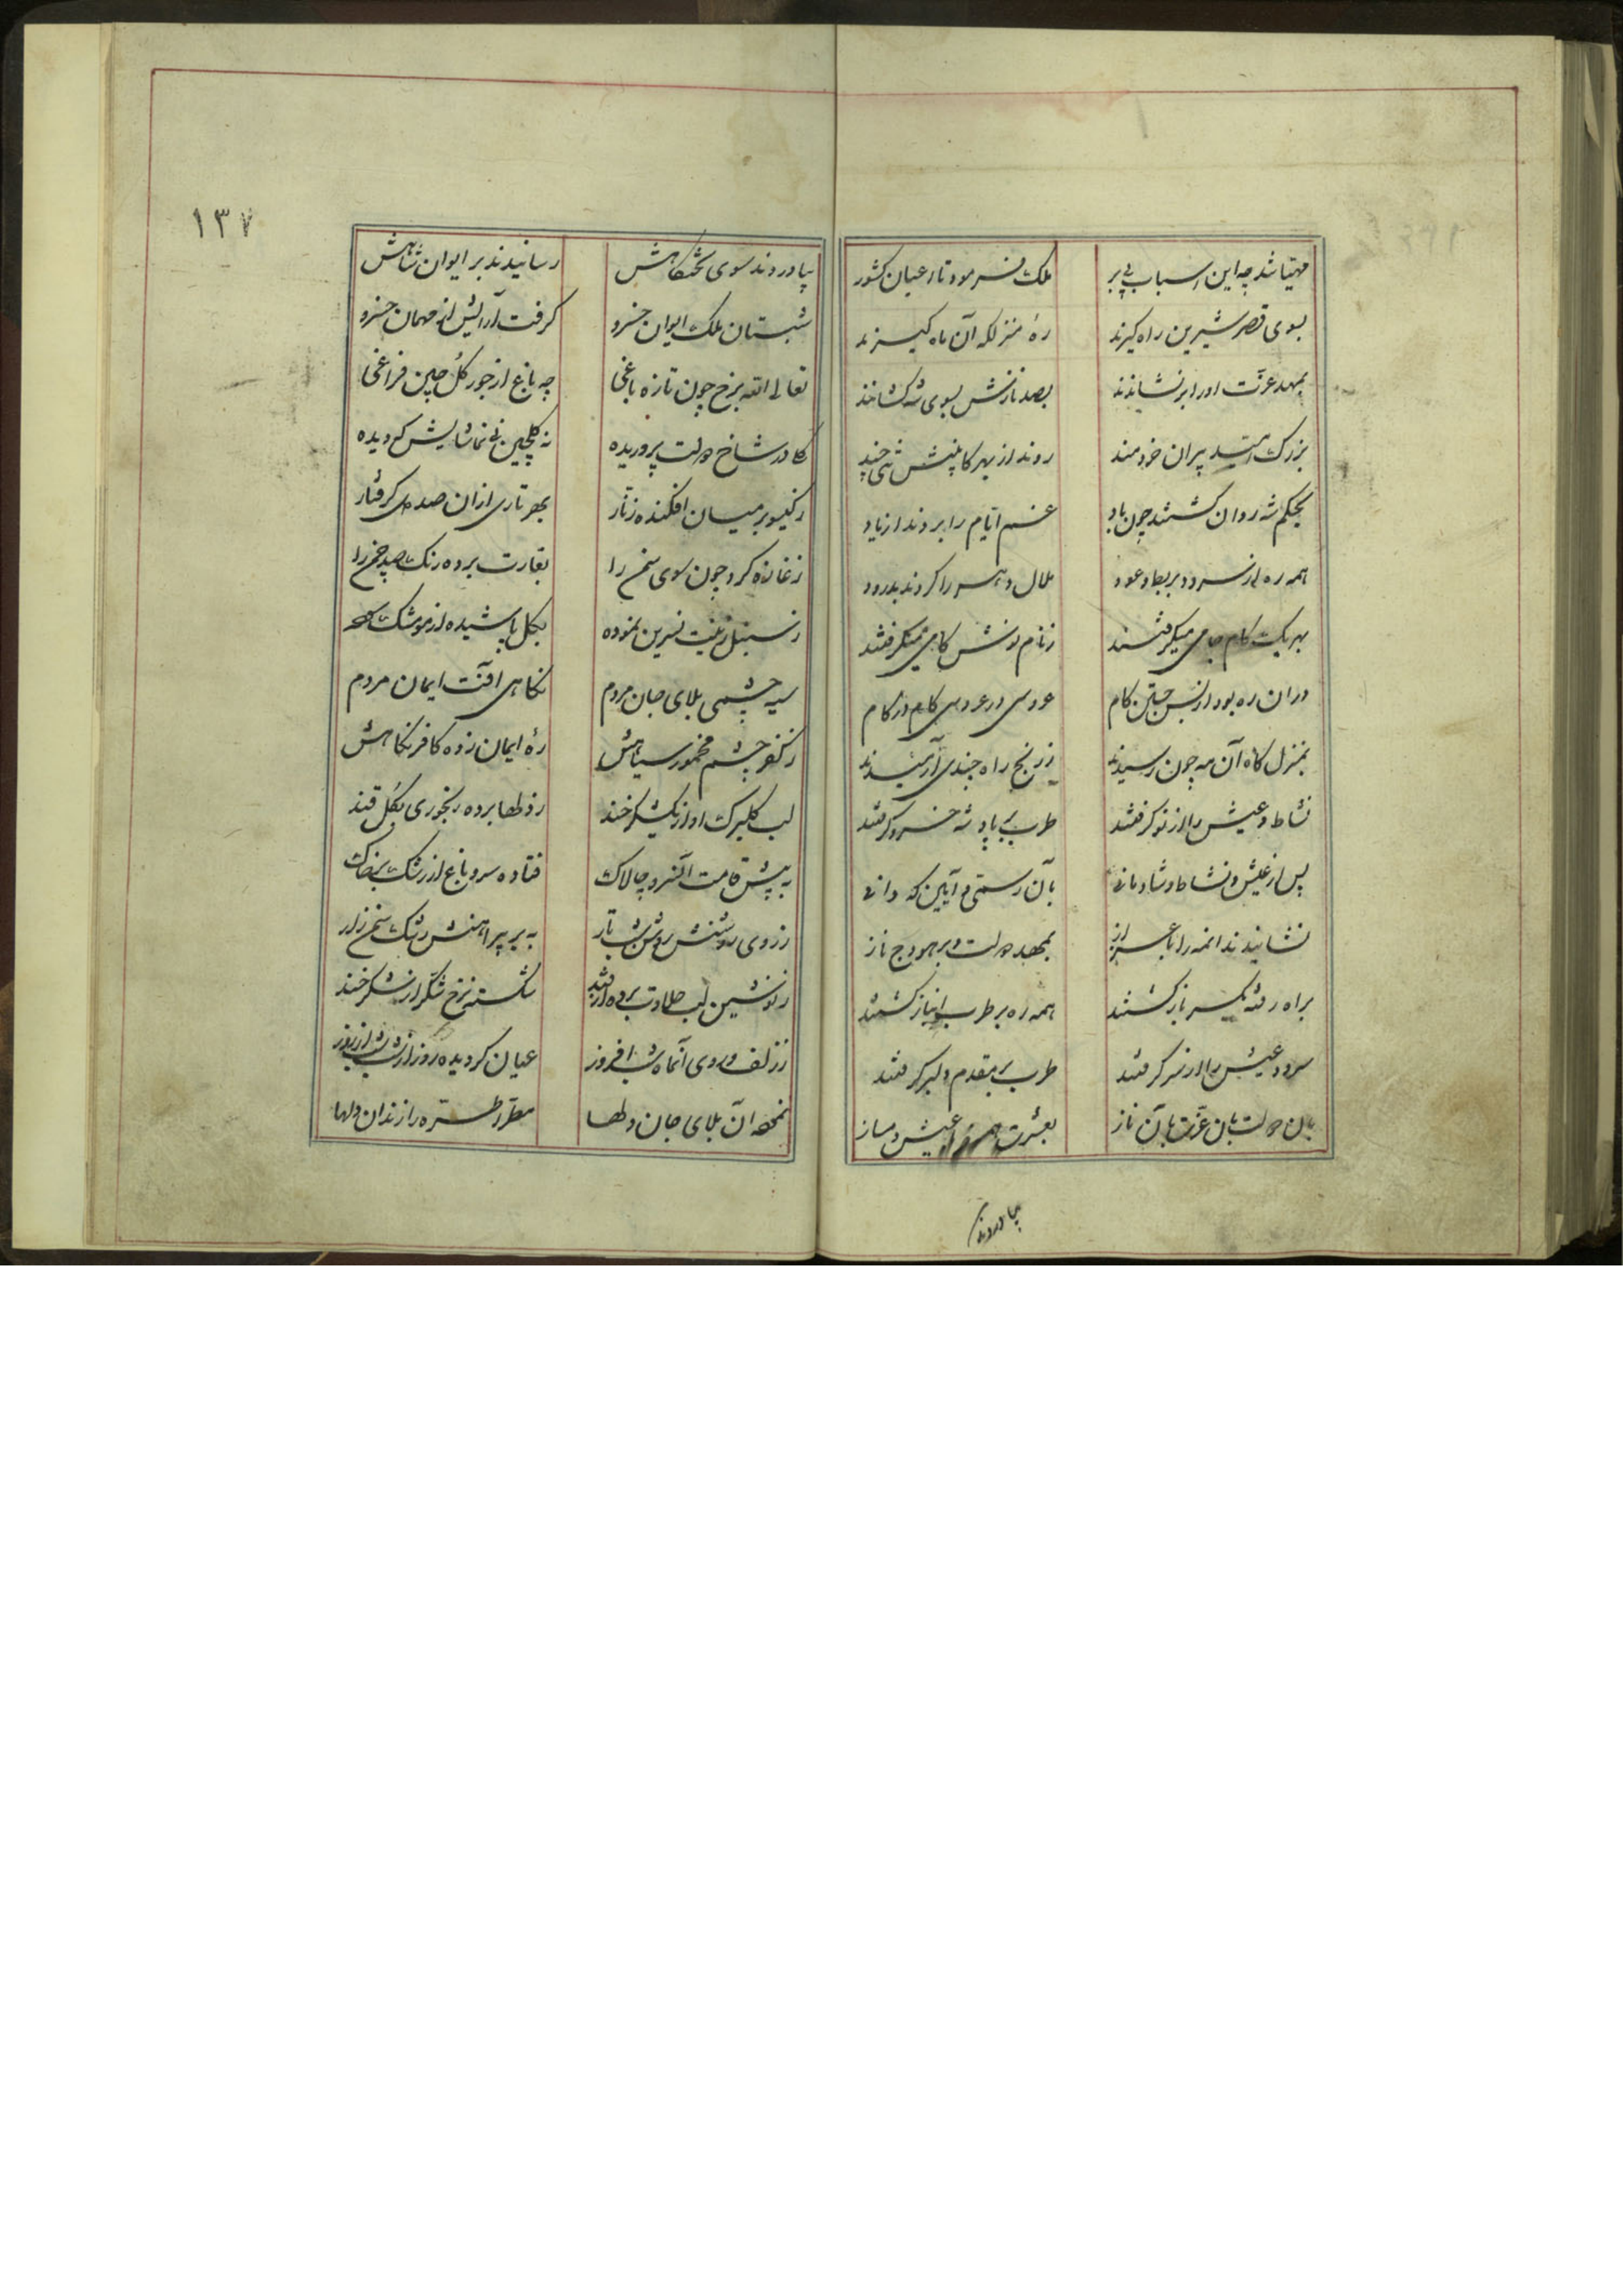 مهیا شد چه این اسباب بی بر ملک فرمود تا اعیان کشور
بسوی قصر شیرین راه کیرند ره منزلکه آن ماه کیرند
بمهد عزت او را بر نشانند بصد نازش بسوی شه کشانند
بزرک امید پیران خردمند روند از بهر کابینش تنی چند
بحکم شه روان کشتند چون باد غم ایام را بردند از یاد
همه ره از سرود بربط و عود ملال دهر را کردند بدرود
بهر یک کام جامی میکرفتند ز نام نوش کامی میکرفتند
در ان ره بود از بس جستن کام عروسی در عروسی کام در کام
بمنزل کاه آن مه چون رسیدند ز رنج راه چندی آرمیدند
نشاط و عیش را از نو کرفتند طرب بر یاد شه خسرو کرفتند
پس از عیش و نشاط و شادمانی بآن رسم و آیین که دانی
نشانیدند انمه را باعزاز بمهد دولت و بر هودج ناز
براه رفته یکسر باز کشتند همه ره بر طرب انباز کشتند
سرود عیش را از سر کرفتند طرب بر مقدم دلبر کرفتند
بان دولت بان عزت بآن ناز بعشرت عیش دمساز
بیاوردند
١٣٧
بیاوردند سوی تختکاهش رسانیدند بر ایوان شاهش
شبستان ملک ایوان خسرو کرفت آرایش از مهمان خسرو
تعالی الله برخ چون تازه باغی چه باغ از جور کل چین فراغی
کل در شاخ دولت پروریده نه کلچین نی تماشایش کردیده
ز کیسو بر میان افکنده زنار بهر تاری ازان صد دل کرفتار
ز غازه کرد چون سوی سمن را بغارت برده رنک صد چمن را
ز سنبل زینت نسرین نموده بکل پاشیده از مو مشک
سیه چشمی بلای جان مردم نکاهی آفت ایمان مردم
ز کفر چشم مخمور سیاهش ره ایمان زده کافر نکاهش
لب کلبرک او از یک شکرخند ز دلها برده رنجوری بکل قند
به پیش قامت آنسرو چالاک فتاده سرو باغ از رشک بر خاک
ز روی روشنش روشن شب تار به بر پیراهنش رشک سمن زار
ز نوشین لب حلاوت برده از قند شکسته نرخ شکر از شکرخند
ز زلف و روی آنماه شب افروز عیان کردیده روز از شب شب از روز
نمحه آن بلای جان دلها معطر طره راز ندان دلها